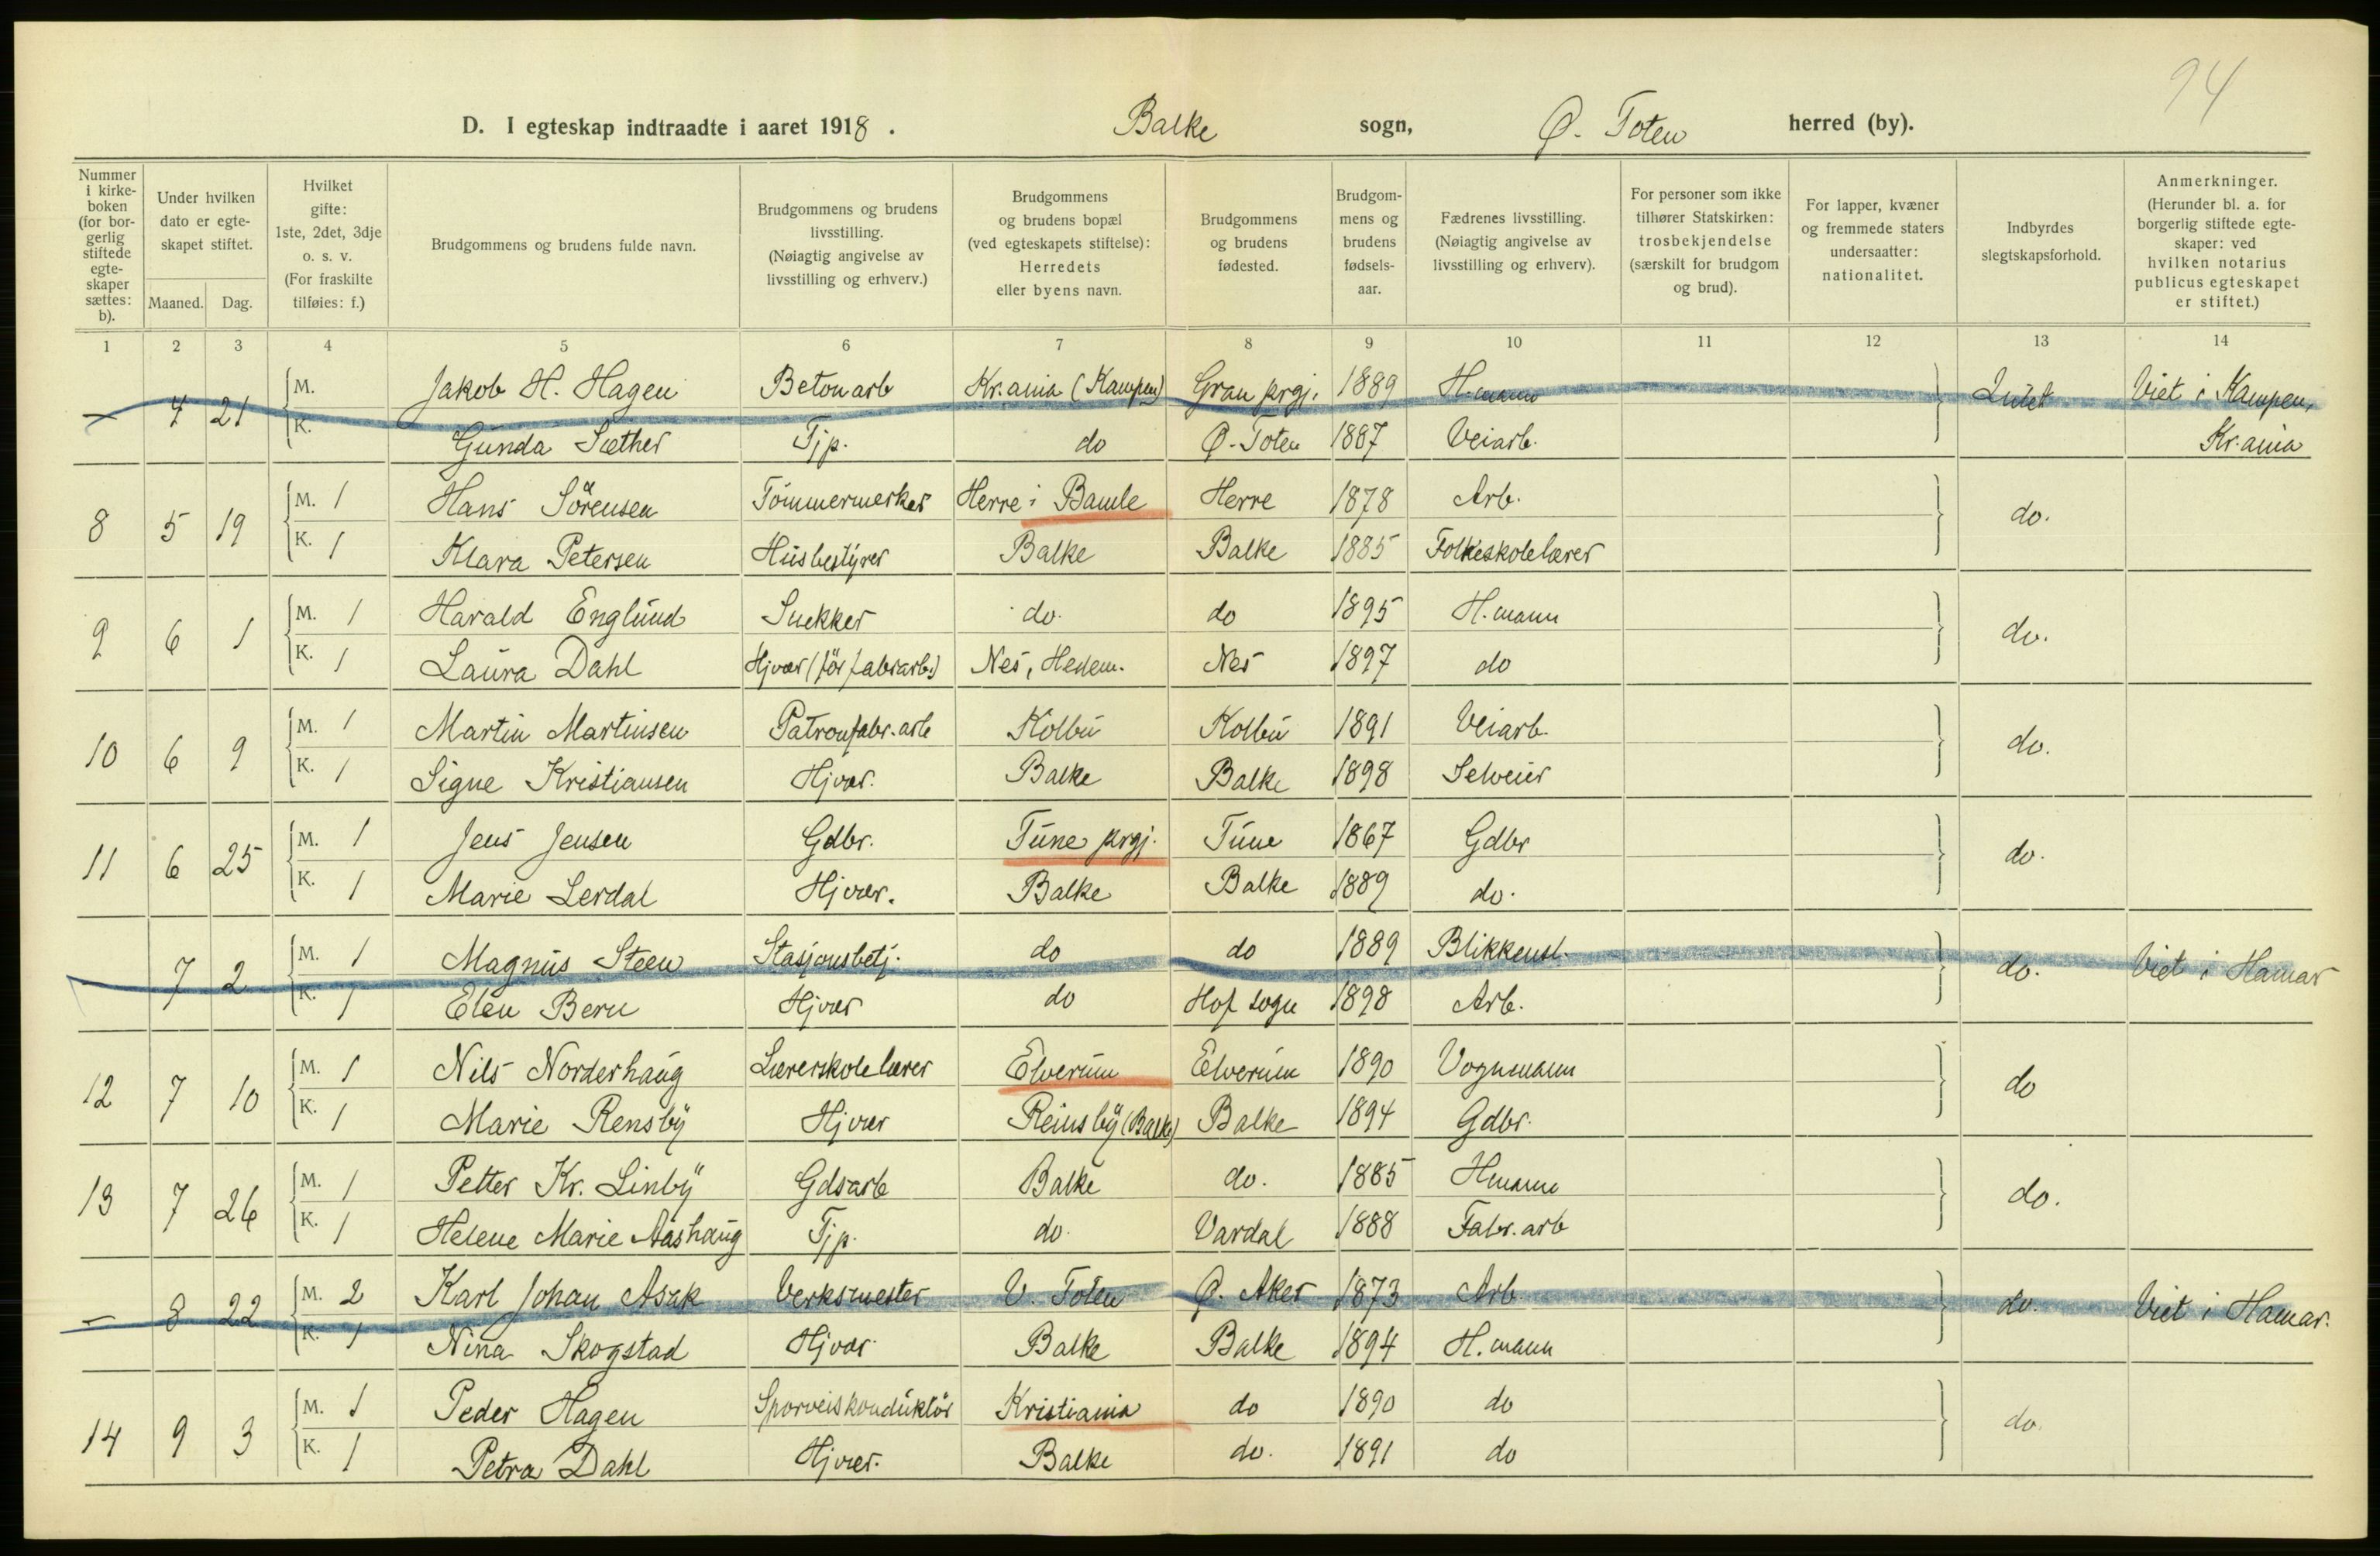 94
D. I egteskap indtraadte i aaret 1918. Balke sogn, Ø. Toten herred (by).
Nummer i kirkeboken (for borgerlig stiftede egteskaper sættes: b).
Under hvilken dato er egteskapet stiftet.
Maaned. Dag.
Hvilket gifte: 1ste, 2det, 3dje o. s. v. (For fraskilte tilføies: f.)
Brudgommens og brudens fulde navn.
Brudgommens og brudens livsstilling. (Nøiagtig angivelse av livsstilling og erhverv.)
Brudgommens og brudens bopæl (ved egteskapets stiftelse): Herredets eller byens navn.
Brudgommens og brudens fødested.
Brudgommens og brudens fødselsaar.
Fædrenes livsstilling. (Nøiagtig angivelse av livsstilling og erhverv).
For personer som ikke tilhører Statskirken: trosbekjendelse (særskilt for brudgom og brud).
For lapper, kvæner og fremmede staters undersaatter: nationalitet.
Indbyrdes slegtskapsforhold.
Anmerkninger. (Herunder bl. a. for borgerlig stiftede egteskaper: ved hvilken notarius publicus egteskapet er stiftet.)
1 2 3 4 5 6 7 8 9 10 11 12 13 14
— 4 21 M. Jakob H. Hagen Betonarb Kr.ania (Kampen) Gran prgj. 1889 H.mann Intet Viet i Kampen,
K. Gunda Sæther Tjp. do Ø. Toten 1887 Veiarb. Kr.ania
8 5 19 M. 1 Hans Sörensen Tömmermerker Herre i Bamle Herre 1878 Arb. do.
K. 1 Klara Petersen Husbestyrer Balke Balke 1885 Folkeskolelærer
9 6 1 M. 1 Harald Englund Snekker do. do 1895 H.mann do.
K. 1 Laura Dahl Hjvær (för fabrarb.) Nes, Hedem. Nes 1897 do
10 6 9 M. 1 Martin Martinsen Patronfabr.arb Kolbu Kolbu 1891 Veiarb. do.
K. 1 Signe Kristiansen Hjvær. Balke Balke 1898 Selveier
11 6 25 M. 1 Jens Jensen Gdbr. Tune prgj. Tune 1867 Gdbr do.
K. 1 Marie Lerdal Hjvær. Balke Balke 1889 do.
— 7 2 M. 1 Magnus Steen Stasjonsbetj. do do 1889 Blikkensl. do. Viet i Hamar
K. 1 Elen Bern Hjvær do Hof sogn 1898 Arb.
12 7 10 M. 1 Nils Norderhaug Lærerskolelærer Elverum Elverum 1890 Vognmann do
K. 1 Marie Rensby Hjvær Reinsby (Balke) Balke 1894 Gdbr.
13 7 26 M. 1 Petter Kr. Linby Gdsarb Balke do. 1885 Hmann do.
K. 1 Helene Marie Aashaug Tjp. do. Vardal 1888 Fabr.arb
— 8 22 M. 2 Karl Johan Asak Verksmester V. Toten Ø. Aker 1873 Arb do. Viet i Hamar.
K. 1 Nina Skogstad Hjvær. Balke Balke 1894 H.mann
14 9 3 M. 1 Peder Hagen Sporveiskonduktör Kristiania do 1890 do do.
K. 1 Petra Dahl Hjvær. Balke do. 1891 do